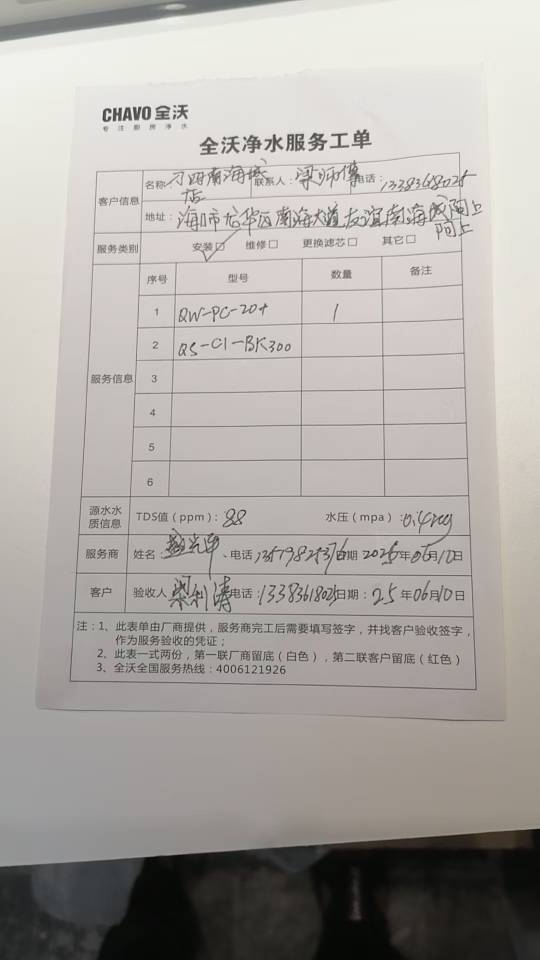 CHAVO 全沃
专注厨房净水
全沃净水服务工单
客户信息 名称: 南海城店 联系人: 梁师傅 电话: 13383618025
地址: 海口市龙华区南海大道友谊南海城陌上
陌上
服务类别 安装□ 维修□ 更换滤芯□ 其它□
服务信息 序号 型号 数量 备注
1 QW-PC-20+ 1
2 QS-C1-BK300
3
4
5
6
源水水质信息 TDS值（ppm）: 88 水压（mpa）: 0.4
服务商 姓名 电话: 日期 2025年06月10日
客户 验收人 电话: 13383618025 日期: 25年06月10日
注：1、此表单由厂商提供，服务商完工后需要填写签字，并找客户验收签字，
作为服务验收的凭证；
2、此表一式两份，第一联厂商留底（白色），第二联客户留底（红色）
3、全沃全国服务热线：4006121926